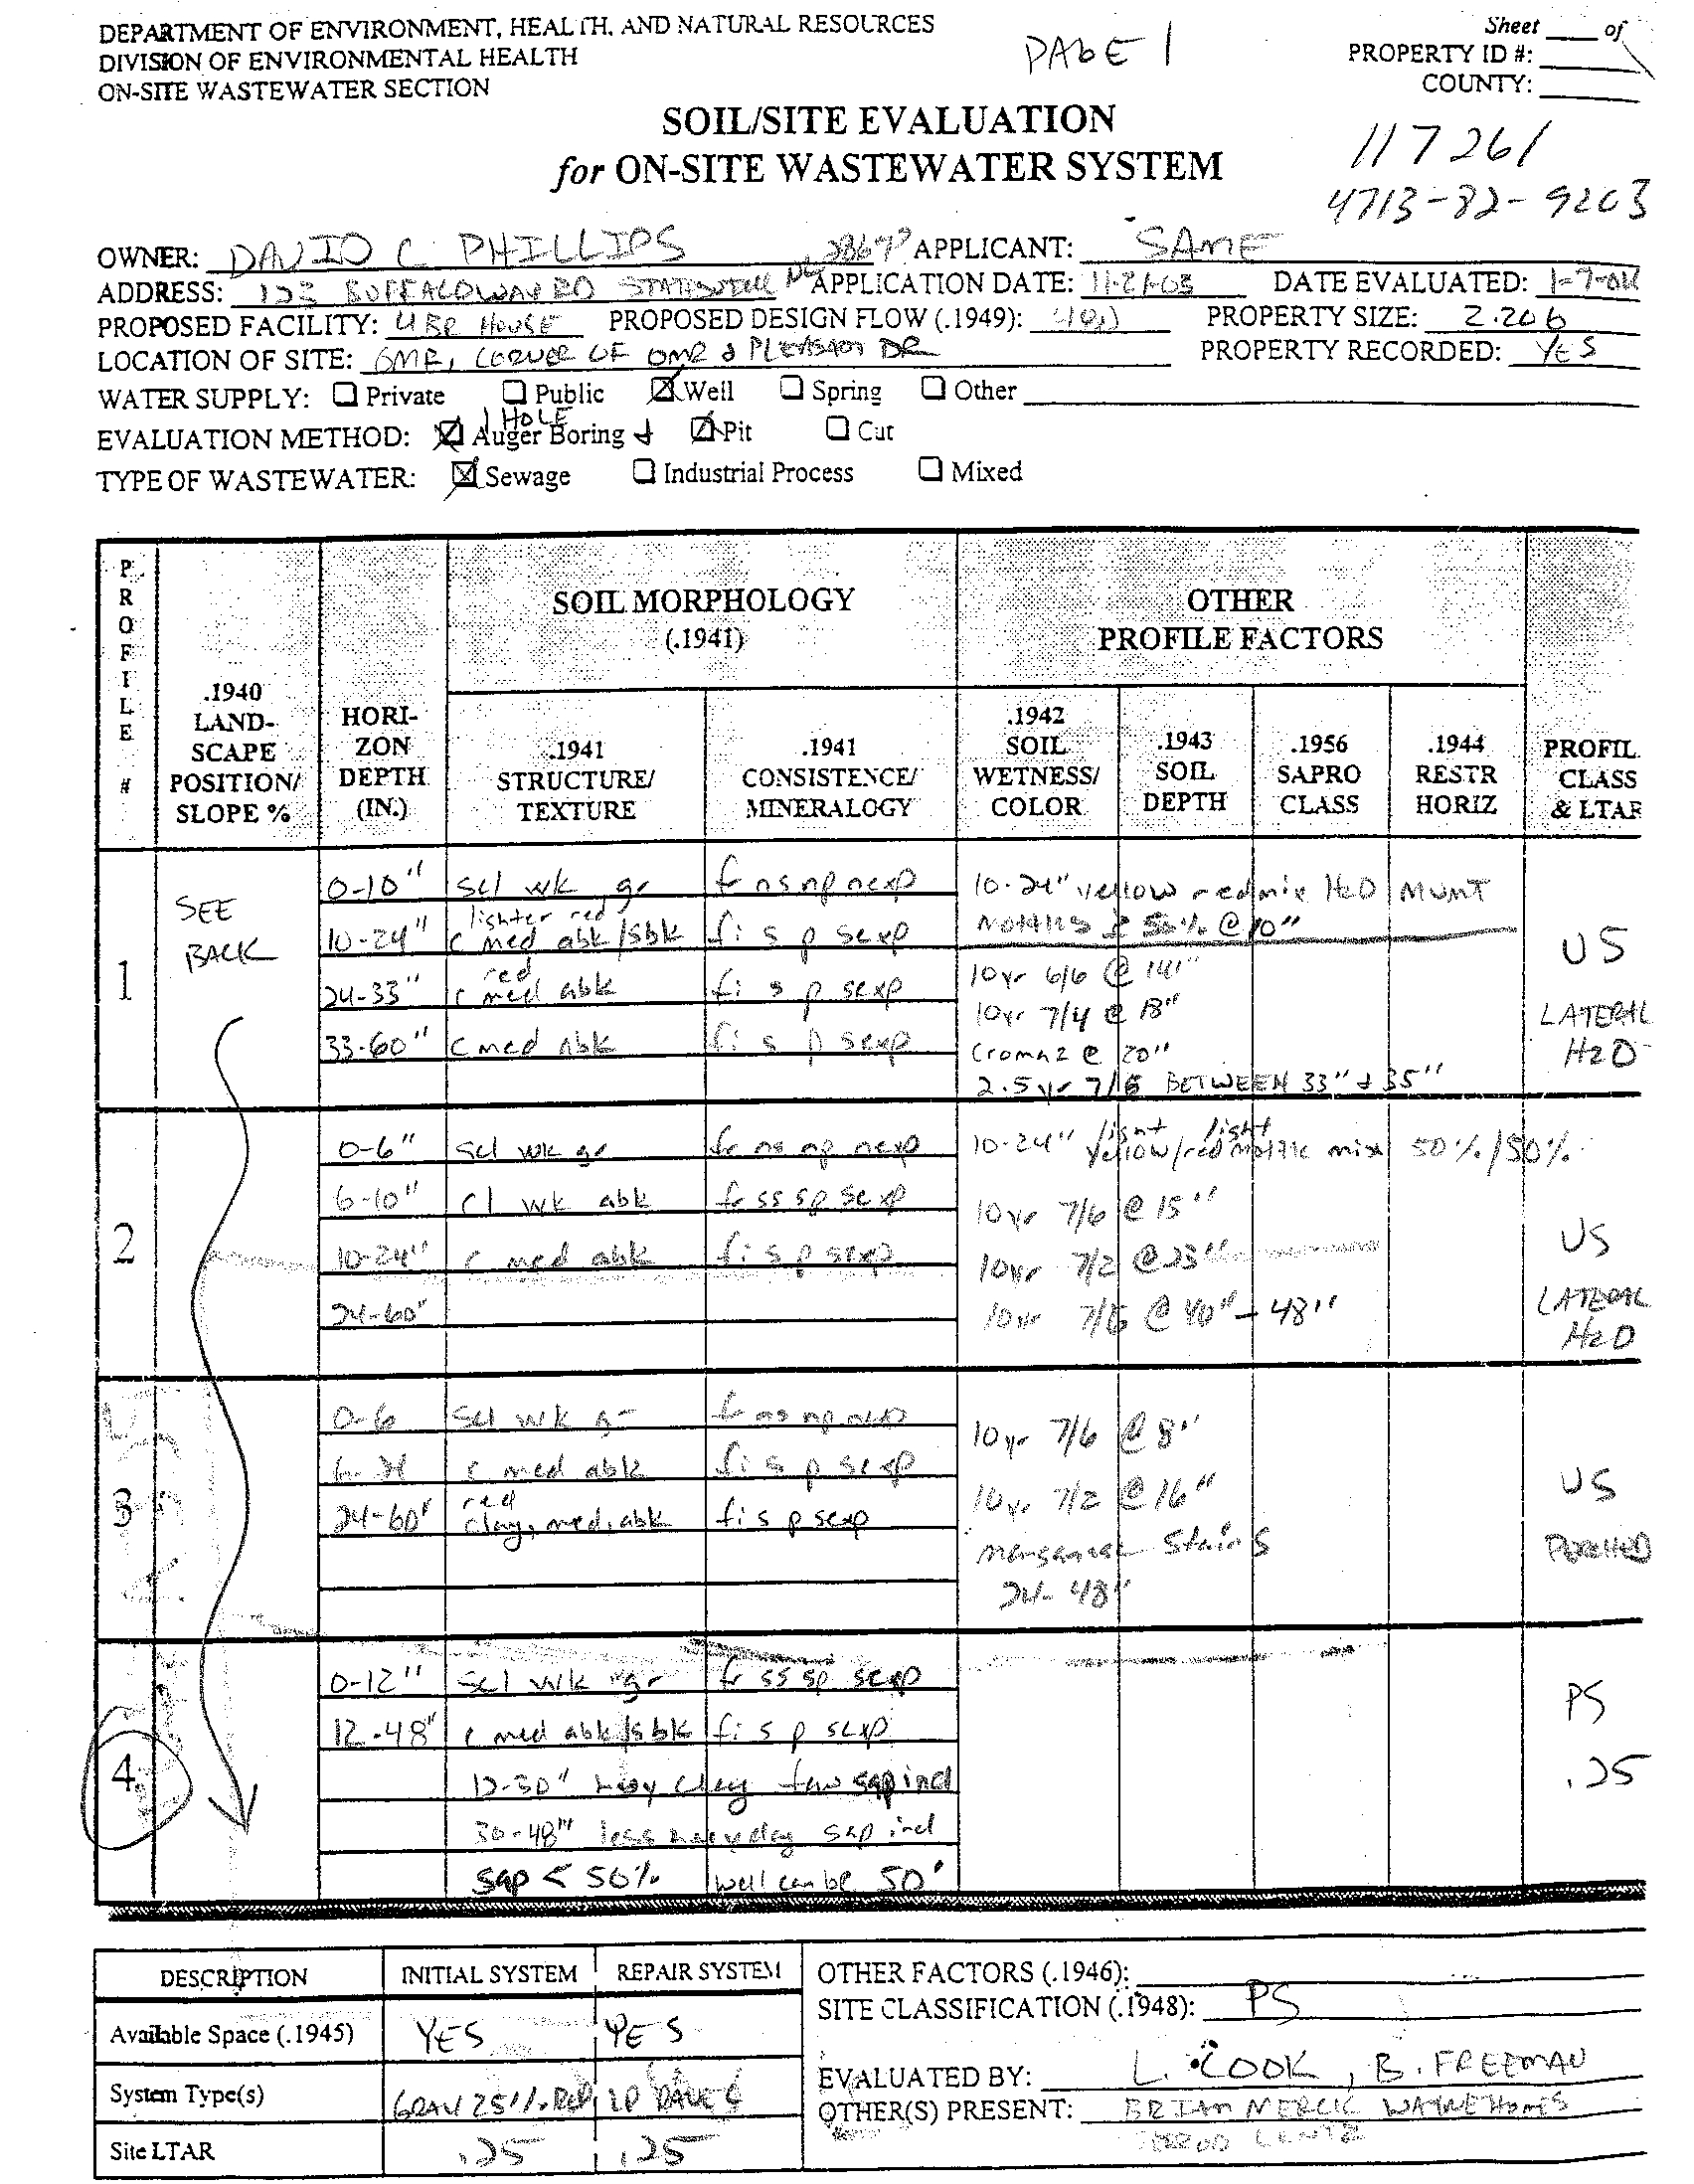 DEPARTMENT OF ENVIRONMENT, HEALTH, AND NATURAL RESOURCES
DIVISION OF ENVIRONMENTAL HEALTH
ON-SITE WASTEWATER SECTION
PAGE 1
Sheet ___ of
PROPERTY ID #:
COUNTY:
SOIL/SITE EVALUATION
for ON-SITE WASTEWATER SYSTEM
117261
4713-82-9203
OWNER: DAVID C. PHILLIPS 28677 APPLICANT: SAME
ADDRESS: 123 BUFFALOWAY RD STATESVILLE NC APPLICATION DATE: 11-21-03 DATE EVALUATED: 1-7-04
PROPOSED FACILITY: 4 BR HOUSE PROPOSED DESIGN FLOW (.1949): 480 PROPERTY SIZE: 2.206
LOCATION OF SITE: OMR, CORNER OF OMR & PLEASANT DR PROPERTY RECORDED: YES
WATER SUPPLY: ☐ Private ☐ Public ☒ Well ☐ Spring ☐ Other
1 HOLE
EVALUATION METHOD: ☒ Auger Boring + ☒ Pit ☐ Cut
TYPE OF WASTEWATER: ☒ Sewage ☐ Industrial Process ☐ Mixed
PROFILE #
.1940 LAND-SCAPE POSITION/ SLOPE %
HORI-ZON DEPTH (IN.)
SOIL MORPHOLOGY (.1941)
.1941 STRUCTURE/ TEXTURE
.1941 CONSISTENCE/ MINERALOGY
OTHER PROFILE FACTORS
.1942 SOIL WETNESS/ COLOR
.1943 SOIL DEPTH
.1956 SAPRO CLASS
.1944 RESTR HORIZ
PROFIL. CLASS & LTAR
1
SEE BACK
0-10" scl wk gr fr ns np nexp 10-24" yellow red mix H2O MVMT
10-24" lighter red c med abk/sbk fi s p sexp Mottles 50% @ 10"
24-33" red c med abk fi s p sexp 10yr 6/6 @ 14"
10yr 7/4 @ 18"
33-60" c med abk fi s p sexp Croma 2 @ 20"
2.5 yr 7/6 BETWEEN 33" + 35"
US
LATERAL
H2O
2
0-6" scl wk gr fr ns np nexp 10-24" light yellow/light red mottle mix 50%/50%
6-10" cl wk abk fr ss sp sexp 10yr 7/6 @ 15"
10-24" c med abk fi s p sexp 10yr 7/2 @ 23"
24-60" 10yr 7/6 @ 40" - 48"
US
LATERAL
H2O
3
0-6 scl wk gr fr ns np nexp 10yr 7/6 @ 8"
6-24 c med abk fi s p sexp 10yr 7/2 @ 16"
24-60" red clay, med, abk fi s p sexp manganese stains
24-48"
US
PERCHED
4
0-12" scl wk gr fr ss sp sexp
12-48" c med abk/sbk fi s p sexp
12-30" hevy clay few sap incl
30-48" less heavy clay sap incl
sap < 50% well can be 50'
PS
.25
DESCRIPTION INITIAL SYSTEM REPAIR SYSTEM
Available Space (.1945) YES YES
System Type(s) GRAV 25% RED LP
Site LTAR .25 .25
OTHER FACTORS (.1946):
SITE CLASSIFICATION (.1948): PS
EVALUATED BY: L. COOK, B. FREEMAN
OTHER(S) PRESENT: BRIAN WAYNE HOMES
LENTZ